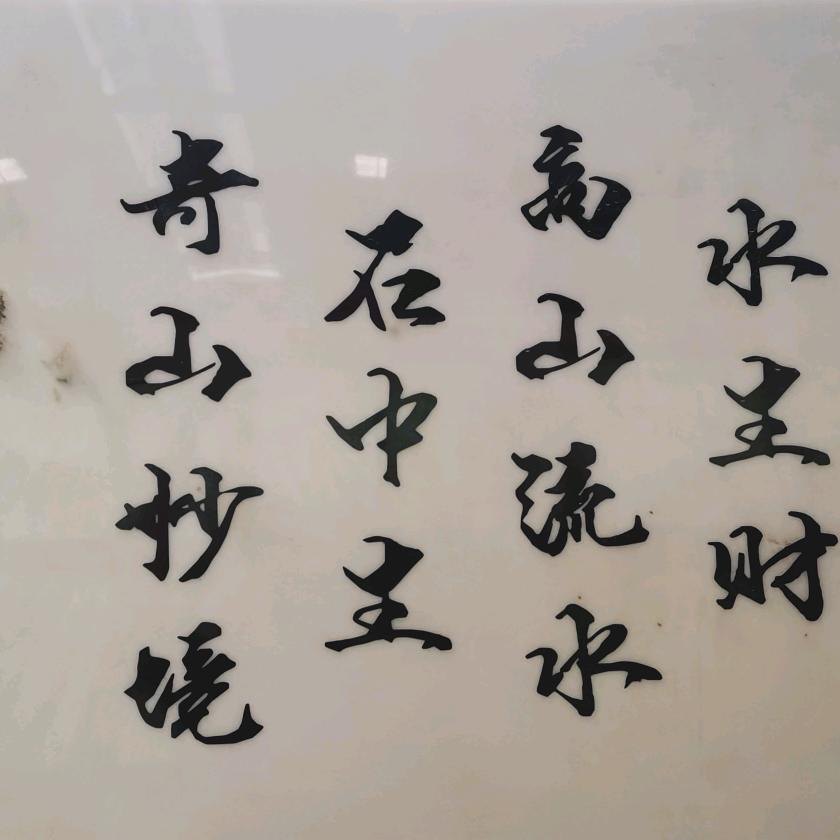 水生财
高山流水
石中生
奇山妙境